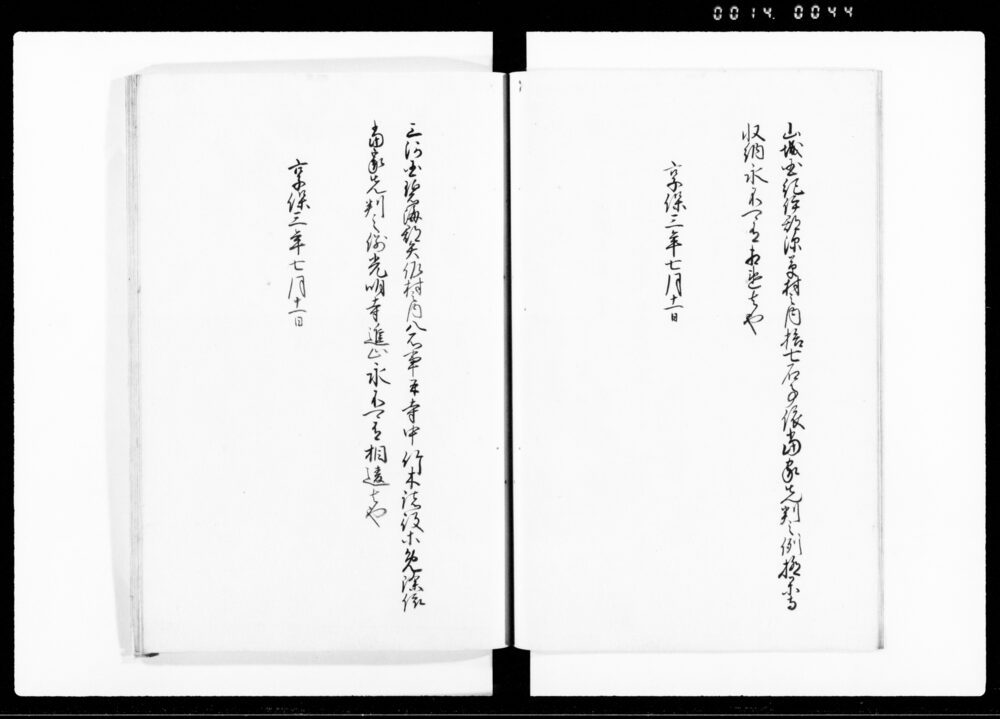 0014 0044
山城国紀伊郡深草村之内拾七石事依当家先判之例極楽寺
収納永不可有相違者也
享保三年七月十一日
三河国碧海郡矢作村内八石事并寺中竹木諸役等免除依
当家先判之例光明寺進止永不可有相違者也
享保三年七月十一日